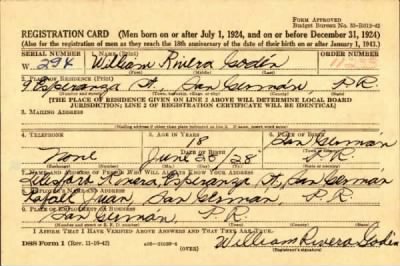 FORM APPROVED
Budget Bureau No. 33-R013-42
REGISTRATION CARD (Men born on or after July 1, 1924, and on or before December 31, 1924)
(Also for the registration of men as they reach the 18th anniversary of the date of their birth on or after January 1, 1943.)
SERIAL NUMBER 1. NAME (Print) ORDER NUMBER
W 294 William Rivera Godin
(First) (Middle) (Last)
2. PLACE OF RESIDENCE (Print)
Esperanza St. San Germán, P.R.
(Number and street) (Town, township, village, or city) (County) (State)
[THE PLACE OF RESIDENCE GIVEN ON LINE 2 ABOVE WILL DETERMINE LOCAL BOARD
JURISDICTION; LINE 2 OF REGISTRATION CERTIFICATE WILL BE IDENTICAL]
3. MAILING ADDRESS
[Mailing address if other than place indicated on line 2. If same, insert word same]
4. TELEPHONE 5. AGE IN YEARS 6. PLACE OF BIRTH
18 San Germán
DATE OF BIRTH
None June 28 P.R.
7. NAME AND ADDRESS OF PERSON WHO WILL ALWAYS KNOW YOUR ADDRESS
Rivera, Esperanza St, San Germán
8. EMPLOYER'S NAME AND ADDRESS
Rafael Juan, San Germán, P.R.
9. PLACE OF EMPLOYMENT OR BUSINESS
San Germán, P.R.
(Number and street or R. F. D. number) (Town) (County) (State)
I AFFIRM THAT I HAVE VERIFIED ABOVE ANSWERS AND THAT THEY ARE TRUE.
DSS Form 1 (Rev. 11-16-42) (OVER) William Rivera Godin
(Registrant's signature)